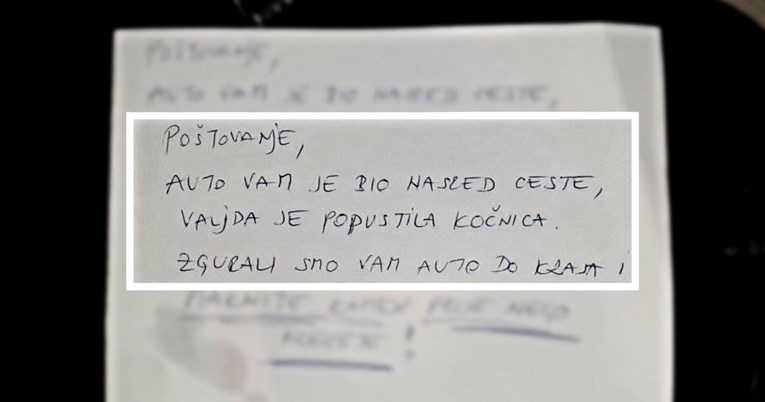 POŠTOVANJE,
AUTO VAM JE BIO NASRED CESTE,
POŠTOVANJE,
AUTO VAM JE BIO NASRED CESTE,
VALJDA JE POPUSTILA KOČNICA.
ZGURALI SMO VAM AUTO DO KRAJA I
MAKNITE KAMEN PRIJE NEGO
!